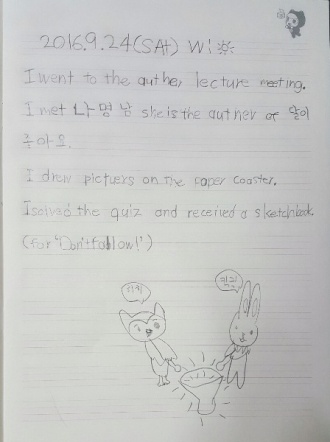 2016.9.24(SAT) W:
I went to the auther lecture meeting.
I met 나명남 she is the auther of 많이
주아요.
I drew pictuers on the paper coaster.
I solved the quiz and received a sketchbook.
(for 'Don't follow!')